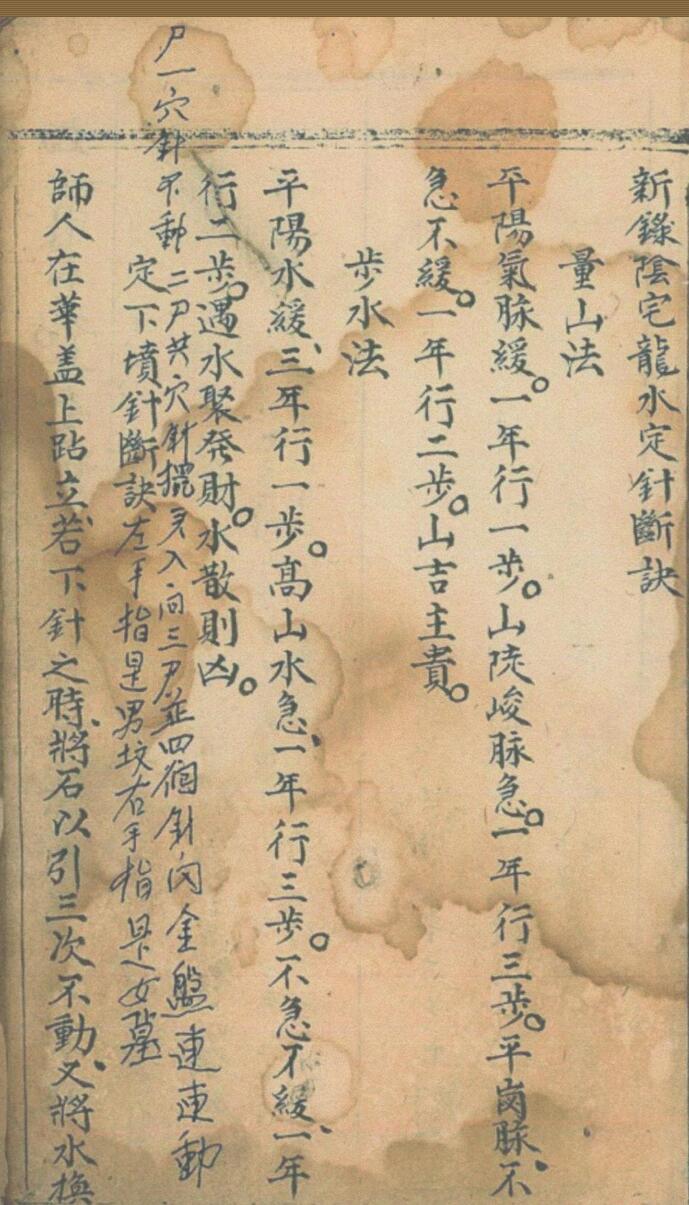 新錄陰宅龍水定針斷訣
量山法
平陽氣脉緩。一年行一步。山陡峻脉急。一年行三步。平崗脉、不
急不緩。一年行二步。山吉主貴。
步水法
平陽水緩、三年行一步。高山水急、一年行三步。不急不緩、一年
行二步。遇水聚發財。水散則凶。
尸一穴針不動二尸共穴針擺 入向三尸並四個針向金盤連連動
定下墳針斷訣左手指是男坟右手指是女墓
師人在華盖上跕立、若下針之時、將石以引三次不動、又將水換